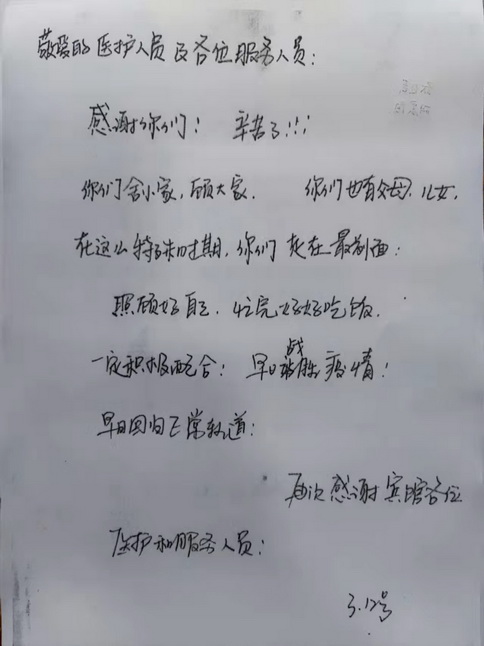 敬爱的医护人员及各位服务人员：
感谢你们！ 辛苦了！！！
你们舍小家，顾大家． 你们也有父母，儿女，
在这么特殊时期，你们走在最前面：
照顾好自己．忙完好好吃饭．
一定积极配合： 早日战胜疫情！
早日回归正常轨道：
再次感谢宾馆各位
医护和服务人员：
3.12号